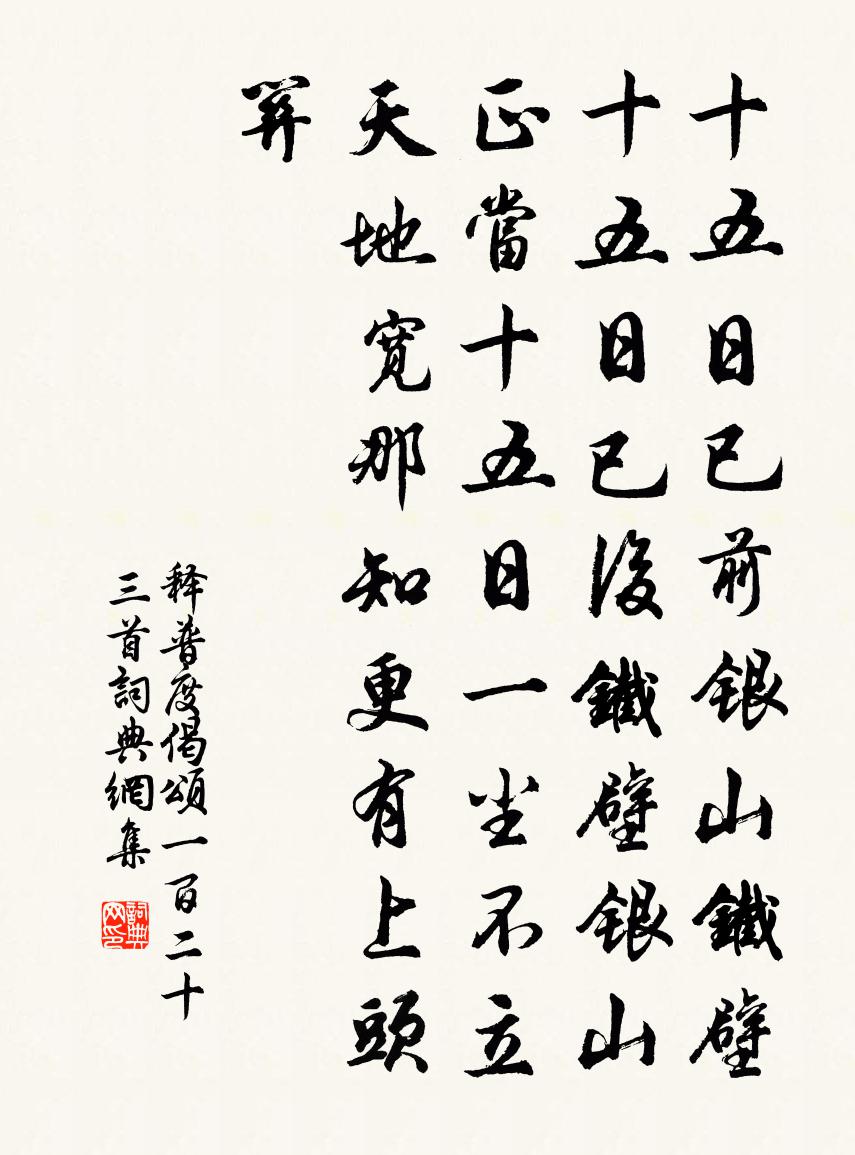 十五日已前銀山鐵壁
十五日已後鐵壁銀山
正當十五日一尘不立
天地寬那知更有上頭
關
释普度偈頌一百二十
三首詞典網集
詞典
网印